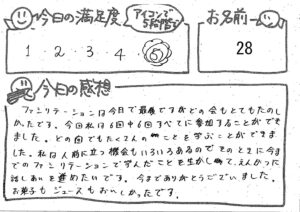 今日の満足度
アイコンで5段階で
お名前
1・2・3・4・5
28
今日の感想
ファシリテーションは今日で最後ですがどの会もとてもたのし
かったです。今回私は6回中6回すべてに参加することができ
ました。どの回でもたくさんのことを学ぶことができま
した。私は人前に立つ機会もいろいろあるのでそのときに今ま
でのファシリテーションで学んだことを生かして、えんかつに
話しあいを進めたいです。今までありがとうございました。
お菓子もジュースもおいしかったです。